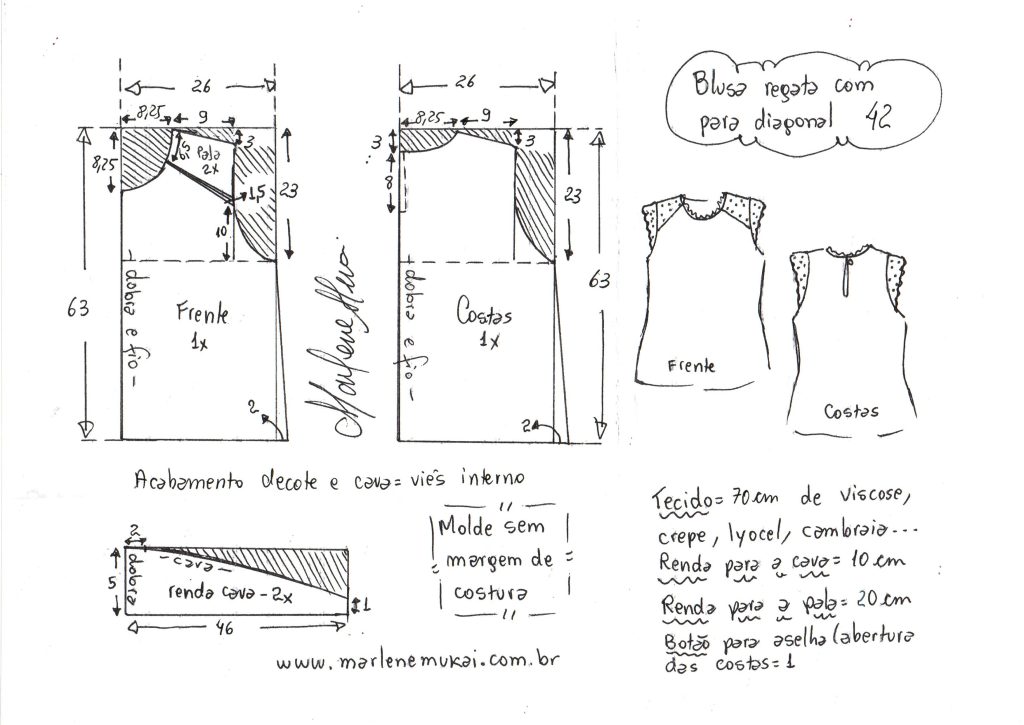 Blusa regata com
para diagonal 42
26
8,25
9
3
8,25
6,5
Pala
2x
1,5
23
10
63
dobra e fio
Frente
1x
2
Marlene Mukai
26
8,25
9
3
3
8
23
63
dobra e fio
Costas
1x
2
Frente
Costas
Acabamento decote e cava = viés interno
2
cava
5
dobra
renda cava - 2x
1
46
Molde sem
margem de
costura
Tecido = 70 cm de viscose,
crepe, lyocel, cambraia...
Renda para a cava = 10 cm
Renda para a pala = 20 cm
Botão para aselha (abertura
das costas = 1
www.marlenemukai.com.br